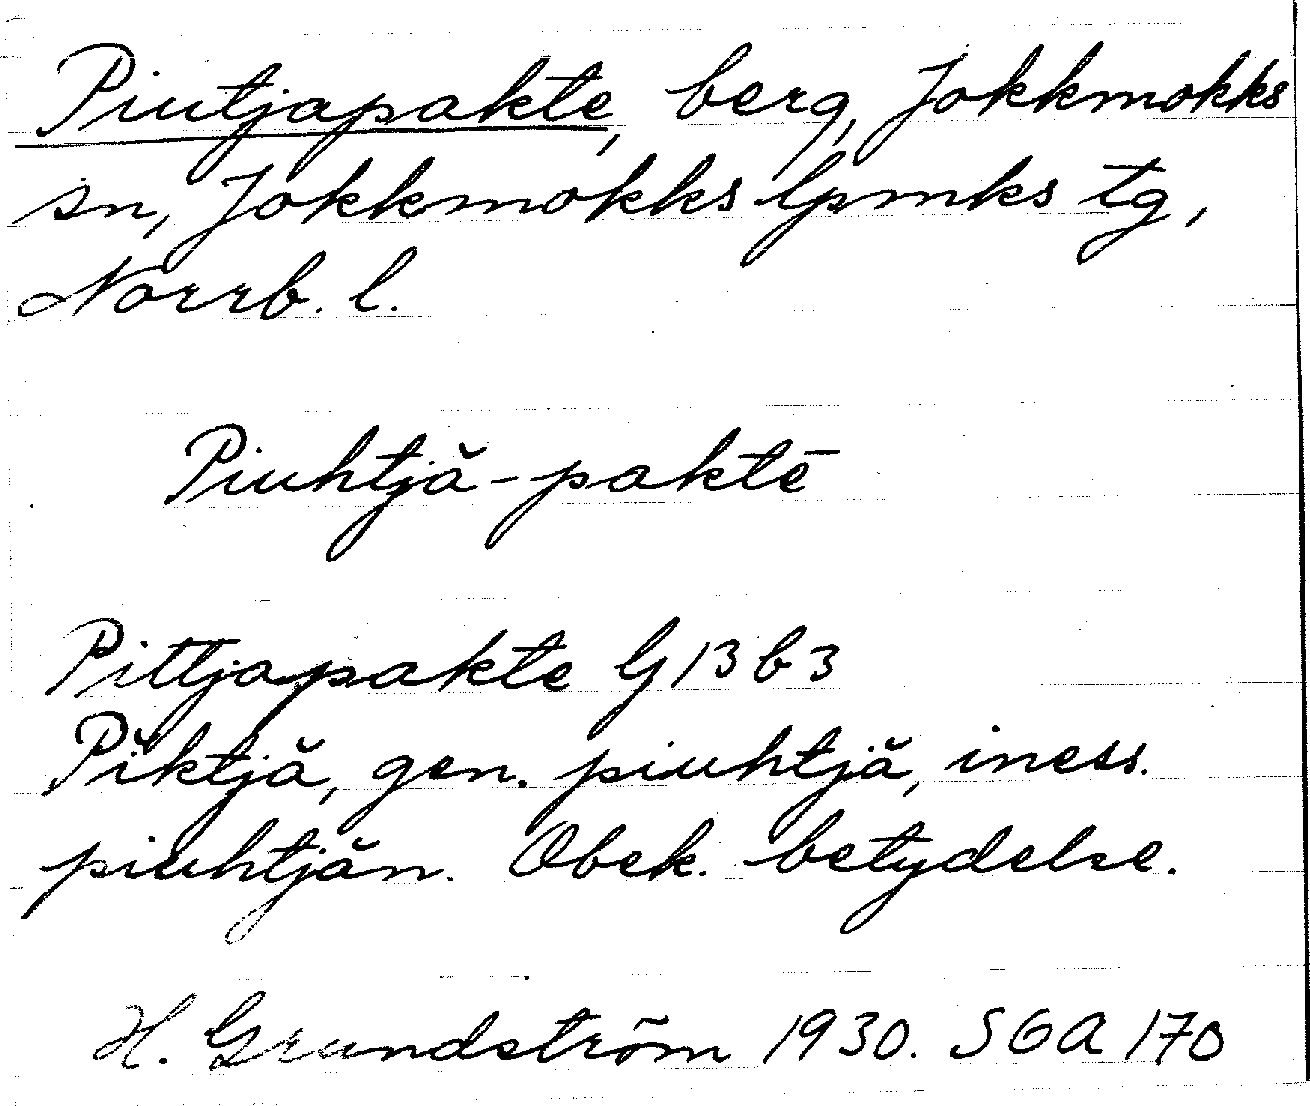 Piutjapakte, berg, Jokkmokks
sn, Jokkmokks lpmks tg,
Norrb. l.
Piuhtjă-paktē
Pittjapakte G 13 b 3
Pĭktjă, gen. piuhtjă, iness.
piuhtjăn. Obek. betydelse.
H. Grundström 1930. SOA 170